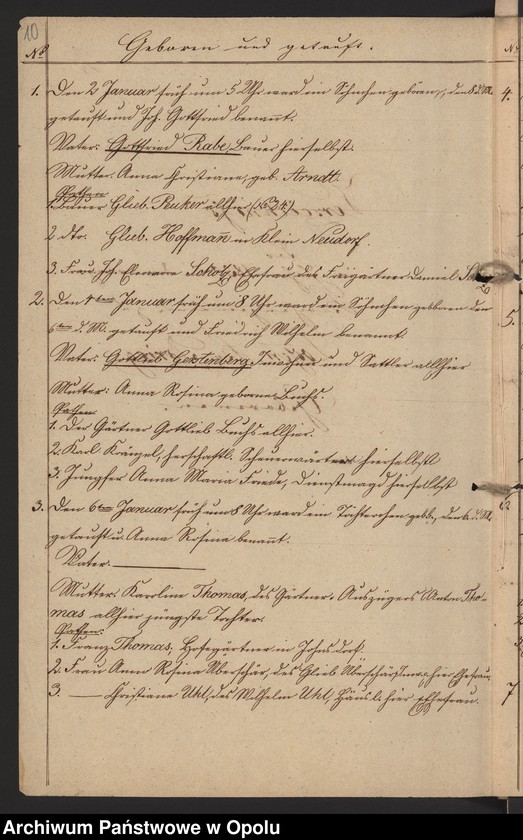 10
No Geboren und getauft. No
1. Den 2 Januar früh um 5 Uhr ward ein Söhnchen geboren, den 8 d. M. 4.
getauft und Joh. Gottfried benannt.
Vater: Gottfried Rabe, Bauer hierselbst.
Mutter: Anna Christiane, geb. Arndt.
Pathen
1. Bauer Glieb. Peuker allhier
2 dto. Glieb. Hoffmann in Klein Neudorf.
3. Frau Joh. Eleonore Scholz, Ehefrau des Freigärtner Daniel
2. Den 4ten Januar früh um 8 Uhr ward ein Söhnchen geboren den 5.
6ten d. M. getauft und Friedrich Wilhelm benannt.
Vater: Gottlieb Gerstenberg, Inwohner und Sattler allhier
Mutter: Anna Rosina geborne Buchs.
Pathen:
1. Der Gärtner Gottlieb Buchs allhier.
2. Karl Kränzel, herschaftl. Scheuerwärter hierselbst
3. Jungfer Anna Maria Friede, Dienstmagd hierselbst
3. Den 6ten Januar früh um 8 Uhr ward ein Töchterchen geb., den 6. d. M. 6
getauft u. Anna Rosina benannt.
Vater.
Mutter: Karoline Thomas, des Gärtner-Auszügers Anton Tho-
mas allhier jüngste Tochter.
Pathen:
1. Franz Thomas, Hofegärtner in Johnsdorf.
2. Frau Anna Rosina Überschär, des Glieb Überschär hier Ehefrau.
3. — Christiane Uhl, des Wilhelm Uhl, Häusl. hier Ehefrau. 7
Archiwum Państwowe w Opolu